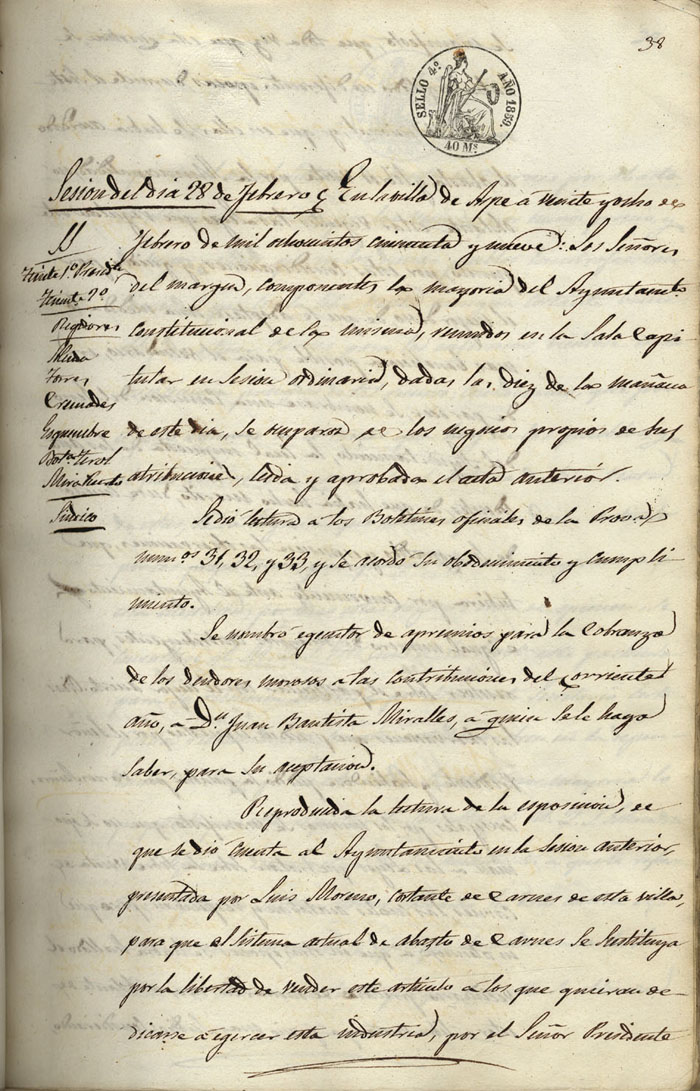 38
SELLO 4º AÑO 1859.
40 Ms
Sesion del dia 28 de febrero En la villa de Aspe á veinte y ocho de
SS
febrero de mil ochocientos cincuenta y nueve: Los Señores
Teniente 1º Presidte
del margen, componentes la mayoria del Ayuntamto
Teniente 2º
Regidores
Constitucional de la misma, reunidos en la Sala Capi
Torres
tular en sesion ordinaria, dadas las diez de la mañana
Cremades
Esquembre
de este dia, se ocuparon de los negocios propios de sus
Botª Terol
Miralles
atribuciones, leida y aprobada el acta anterior.
Sindico
Se dió lectura á los Boletines oficiales de la Prova
numos 31, 32, y 33, y se acordó su obedecimiento y cumpli
miento.
Se nombró egecutor de apremios para la cobranza
de los deudores morosos a las contribuciones del corriente
año, a Dn Juan Bautista Miralles, á quien se le haga
saber, para su aceptacion.
Reproducida la lectura de la esposicion, de
que se dió cuenta al Ayuntamiento en la sesion anterior,
presentada por Luis Moreno, cortante de carnes de esta villa,
para que el sistema actual de abasto de carnes se sustituya
por la libertad de vender este articulo a los que quieran de-
dicarse a egercer esta industria, por el Señor Presidente